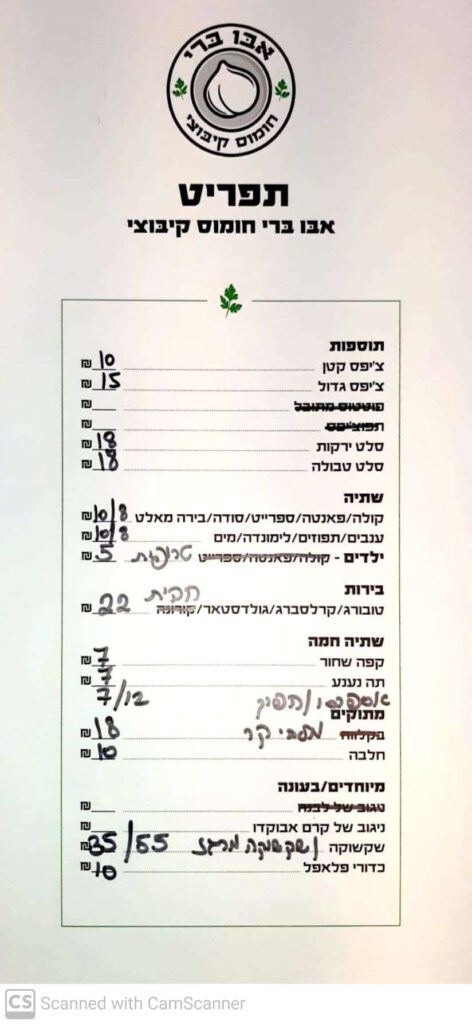 אבו ברי
חומוס קיבוצי
תפריט
אבו ברי חומוס קיבוצי
תוספות
צ'יפס קטן 10 ₪
צ'יפס גדול 15 ₪
פוטטוס מתובל ₪
תפוצ'יפס ₪
סלט ירקות 18 ₪
סלט טבולה 18 ₪
שתיה
קולה/פאנטה/ספרייט/סודה/בירה מאלט 10/8 ₪
ענבים/תפוזים/לימונדה/מים 10/8 ₪
ילדים - קולה/פאנטה/ספרייט טרופית 5 ₪
בירות חבית
טובורג/קרלסברג/גולדסטאר/קורונה 22 ₪
שתיה חמה
קפה שחור 7 ₪
תה נענע 7 ₪
אספרסו/הפוך 7/12
מתוקים
בקלווה מלבי קר 18 ₪
חלבה 10 ₪
מיוחדים/בעונה
ניגוב של לבנה ₪
ניגוב של קרם אבוקדו ₪
שקשוקה /שקשוקה מרגז 35/55 ₪
כדורי פלאפל 10 ₪
CS Scanned with CamScanner